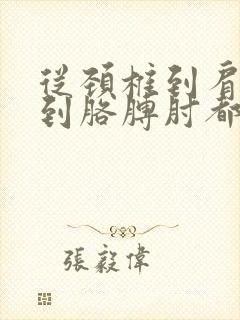 從頚椎到肩
到胳膊肘都
張毅偉